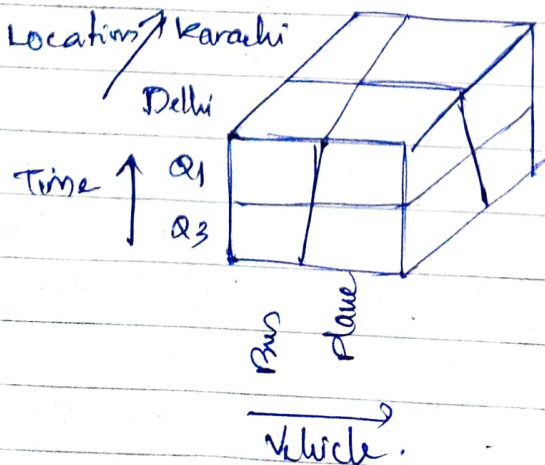 Location Karachi
Delhi
Time Q1
Q3
Bus
Plane
Vehicle.